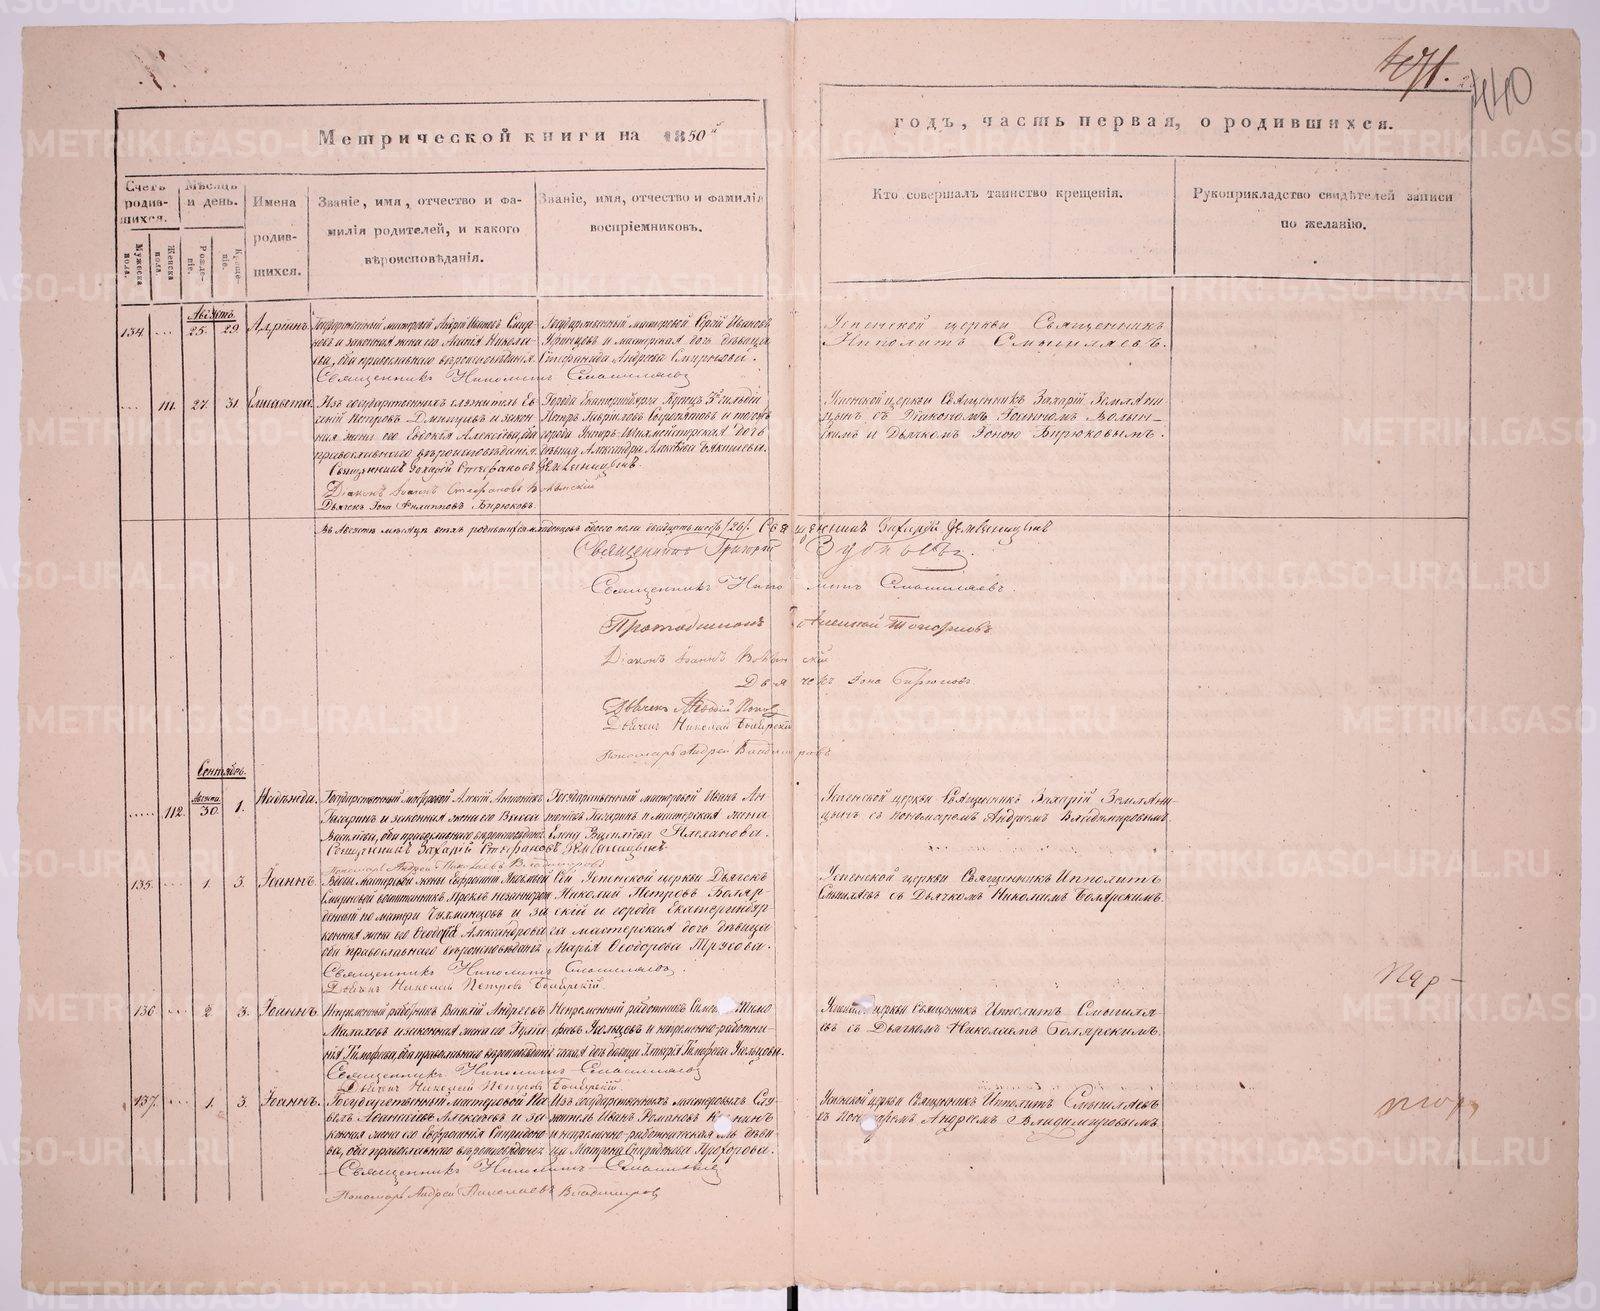 471.
440
Метрической книги на 1850й
годъ, часть первая, о родившихся.
Счетъ родив-шихся.
Мѣсяцъ и день.
Имена родив-шихся.
Званіе, имя, отчество и фа-
милія родителей, и какого
вѣроисповѣданія.
Званіе, имя, отчество и фамилія
воспріемниковъ.
Кто совершалъ таинство крещенія.
Рукоприкладство свидѣтелей записи
по желанію.
Мужеска пола.
Женска пола.
Рожде-ніе.
Креще-ніе.
Августъ.
134 25. 29
Государственный мастеровой Андрей Ивановъ Смир-
новъ и законная жена его Агапія Никола-
ева, оба православнаго вѣроисповѣданія.
Священникъ Ипполитъ Смышляевъ
Государственный мастеровой Сергій Ивановъ
и мастерская дочь дѣвица
Стефанида Андреева Смирнова.
Успенской церкви Священникъ
Ипполитъ Смышляевъ.
111. 27. 31. Елисавета.
Изъ государственныхъ служитель Ев-
сеній Петровъ и закон-
ная жена его Евдокія Алексѣева, оба
православнаго вѣроисповѣданія.
Священникъ Захарій Стефановъ Земляницынъ
Діаконъ Іоаннъ Стефановъ Волынскій
Дьячекъ Іона Филипповъ Бирюковъ
Города Екатеринбурга Купецъ 3й гильдіи
Петръ Гавриловъ и тогожъ
города дочь
дѣвица Александра Алексѣева
Успенской церкви Священникъ Захарій Земляни-
цынъ съ Діакономъ Іоанномъ Волын-
скимъ и Дьячкомъ Іоною Бирюковымъ.
Въ Августѣ мѣсяцѣ всѣхъ родившихся младенцовъ обоего пола двадцать шесть /26/. Священникъ Захарій Земляницынъ
Священникъ Григорій Зубковъ.
Священникъ Ипполитъ Смышляевъ.
Протодіаконъ Алексій Топорковъ
Діаконъ Іоаннъ Волынскій
Дьячекъ Іона Бирюковъ.
Дьячекъ Меѳодій Поповъ
Дьячекъ Николай Боярскій
Пономарь Андрей Владимировъ
Сентябрь.
112. Августа 30. 1. Надежда.
Государственный мастеровой Алексій Антоніевъ
Гагаринъ и законная жена его Васса
Васильева, оба православнаго вѣроисповѣданія.
Священникъ Захарій Стефановъ Земляницынъ
Пономарь Андрей Николаевъ Владимировъ
Государственный мастеровой Иванъ Ан-
тоніевъ Гагаринъ и мастерская жена
Елена Васильева Плеханова.
Успенской церкви Священникъ Захарій Земляни-
цынъ съ пономаремъ Андреемъ Владимировымъ.
135. 1. 3. Іоаннъ.
Вдовы мастерской жены Евфросиніи Яковлевой
Смирновой воспитанникъ незаконнорож-
денный по матери и за-
конная жена его Ѳеодосія Александрова
оба православнаго вѣроисповѣданія.
Священникъ Ипполитъ Смышляевъ.
Дьячекъ Николай Петровъ Боярскій.
Сей Успенской церкви Дьячекъ
Николай Петровъ Бояр-
скій и города Екатеринбур-
га мастерская дочь дѣвица
Марія Ѳеодорова Трусова.
Успенской церкви Священникъ Ипполитъ
Смышляевъ съ Дьячкомъ Николаемъ Боярскимъ.
136 2 3. Іоаннъ.
Непремѣнный работникъ Василій Андреевъ
Малаховъ и законная жена его Іулiа-
нія Тимофеева, оба православнаго вѣроисповѣданія
Священникъ Ипполитъ Смышляевъ
Дьячекъ Николай Петровъ Боярскій.
Непремѣнный работникъ Тимо-
фѣевъ Усольцовъ и непремѣнно-работни-
чская дочь дѣвица Тимофеева Усольцова.
церкви Священникъ Ипполитъ Смышля-
евъ съ Дьячкомъ Николаемъ Боярскимъ.
137. 1. 3. Іоаннъ.
Государственный мастеровой
Алексѣевъ и за-
конная жена его Евфросинія Спиридоно-
ва, оба православнаго вѣроисповѣданія
Священникъ Ипполитъ Смышляевъ
Пономарь Андрей Николаевъ Владимировъ
Изъ государственныхъ мастеровыхъ Слу-
житель Иванъ Романовъ
и непремѣнно-работническая дѣви-
ца Матрена Спиридонова Прохорова.
Успенской церкви Священникъ Ипполитъ Смышляевъ
съ Пономаремъ Андреемъ Владимировымъ.